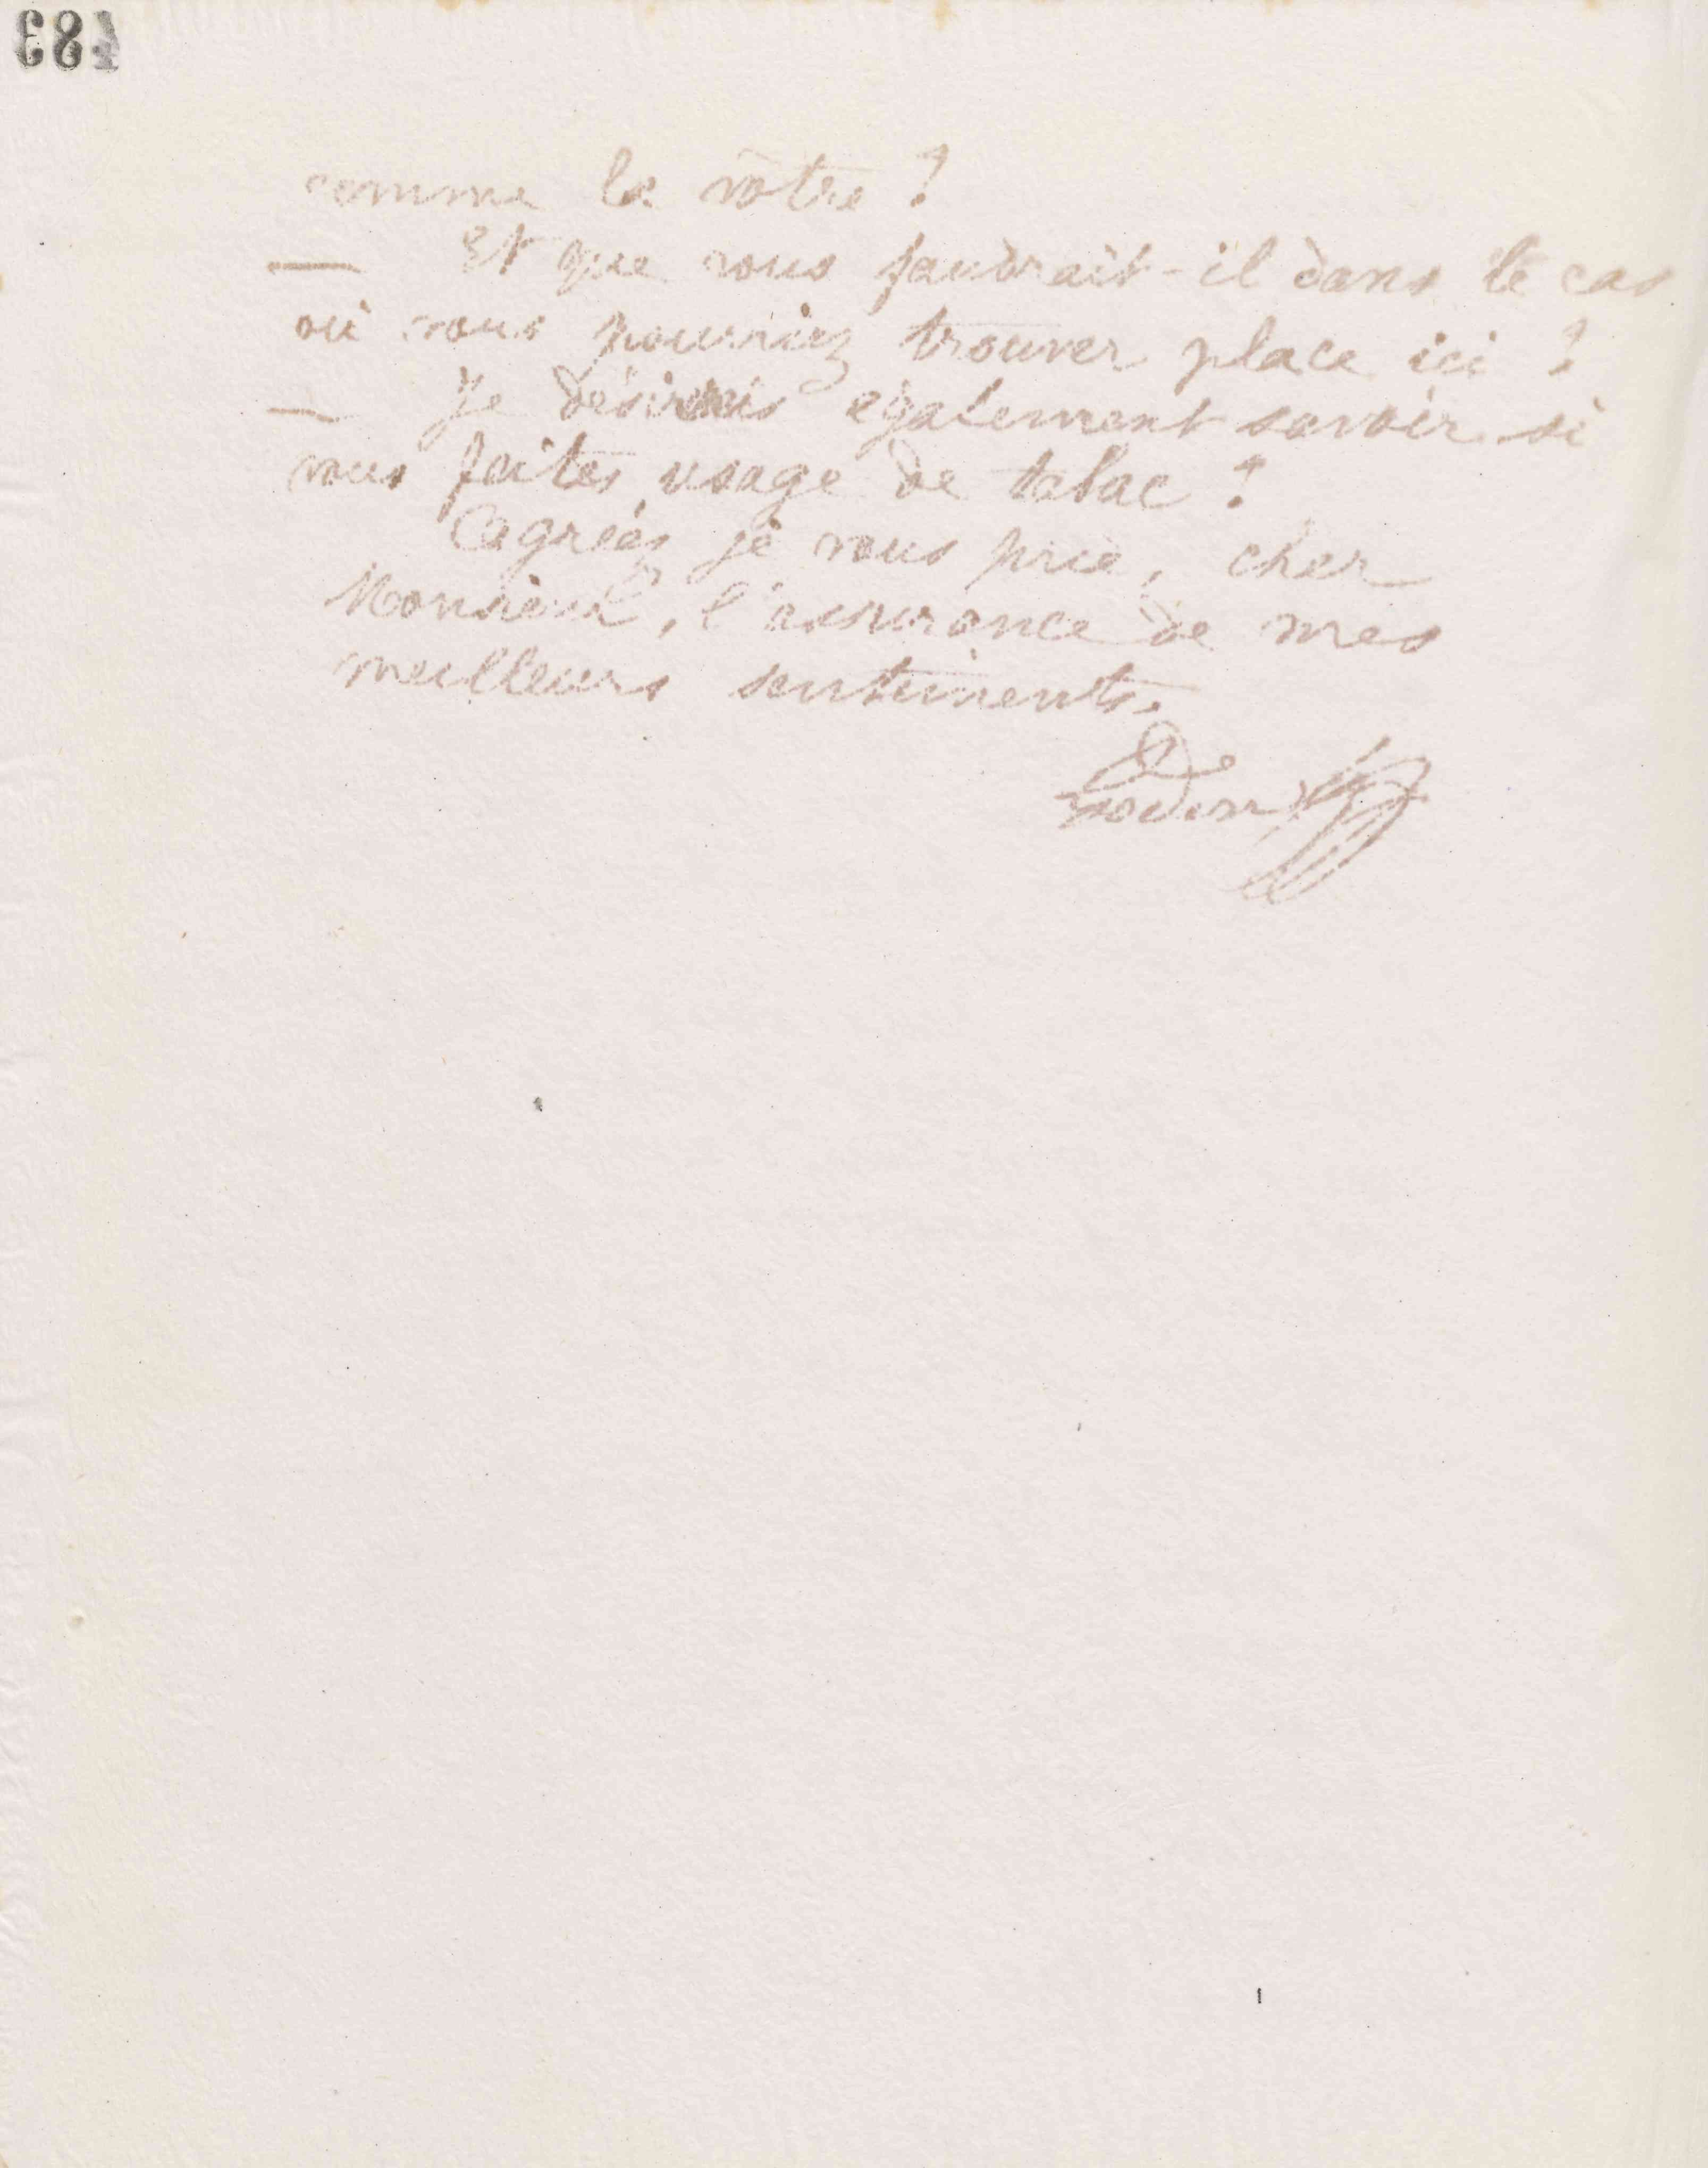 483
comme la vôtre ?
— Et que vous faudrait-il dans le cas
où vous pourriez trouver place ici ?
— Je désirerais également savoir si
vous faites usage de tabac ?
Agréez je vous prie, cher
Monsieur, l'assurance de mes
meilleurs sentiments.
Godin